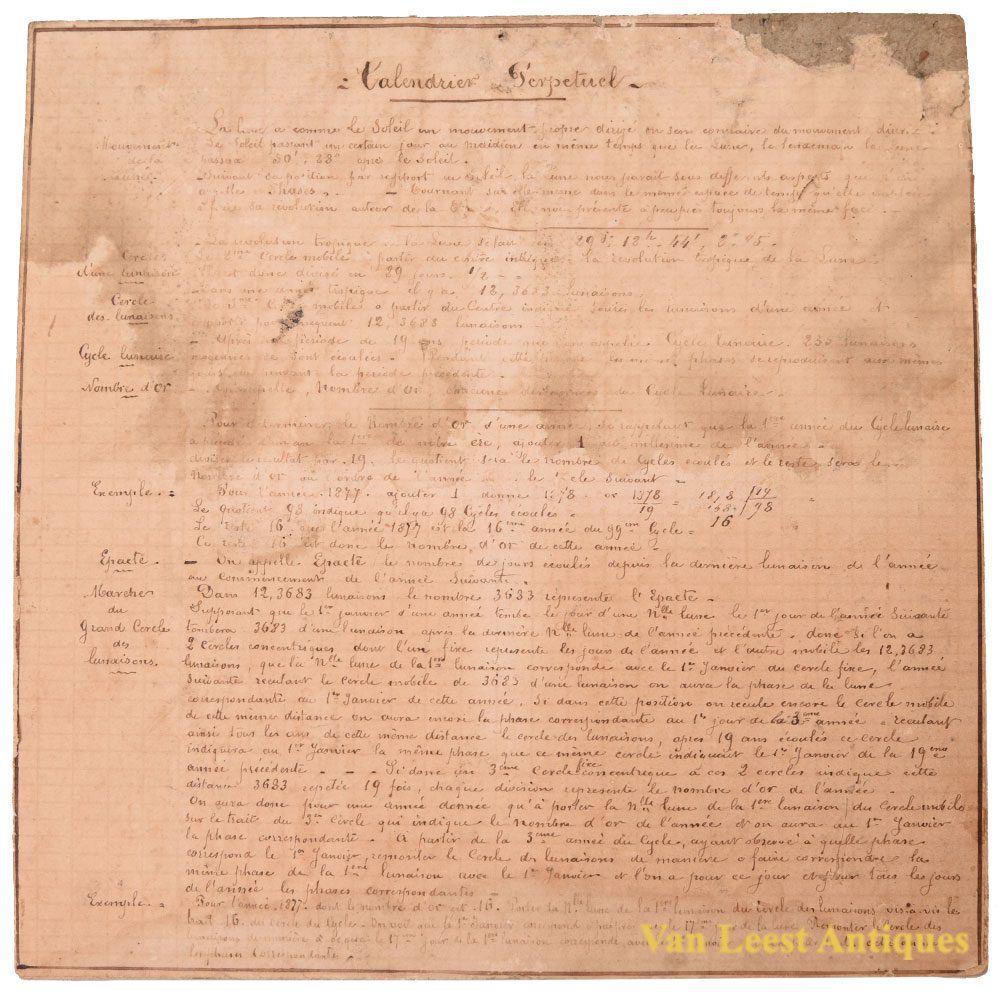 - Calendrier Perpetuel -
Mouvement de la Lune
La Lune a comme le Soleil un mouvement propre dirigé en sens contraire du mouvement
Le Soleil passant un certain jour au méridien en même temps que la Lune, le lendemain la Lune
passera 50' 28" après le Soleil.
Suivant sa position par rapport au Soleil, la Lune nous parait sous differents aspects que
appelle Phases. - Tournant sur elle même dans le même espace de temps qu'elle
à faire sa révolution autour de la elle nous présente à peu près toujours la même face.
La révolution tropique de la Lune se fait en 29 j. 12 h. 44'
Cercle d'une lunaison
Le Cercle mobile à partir du centre indique la révolution tropique de la Lune
est donc divisé en 29 jours 1/2
Dans une année tropique il y a 12,3683 lunaisons.
Cercle des lunaisons
Le Cercle mobile à partir du Centre indique toutes les lunaisons d'une année et
par conséquent 12,3683 lunaisons.
Cycle lunaire
- Après une période de 19 ans, période que l'on appelle Cycle lunaire, 235 lunaisons
moyennes se sont écoulées - Pendant cette les mêmes phases se reproduisent aux mêmes
jours que pendant la période précédente -
Nombre d'or -
On appelle Nombre d'or, chacune des années du Cycle Lunaire.
Pour déterminer le Nombre d'Or d'une année, se rappelant que la 1ère année du Cycle lunaire
de notre ère, ajouter 1 au millésime de l'année -
diviser le résultat par 19. Le quotient sera le nombre de Cycles écoulés et le reste sera le
Nombre d'or ou l'ordre de l'année Suivant -
Exemple. -
Pour l'année 1877 ajouter 1 donne 1878 or 1878/19 = 1878 | 19
168 | 98
16
Le quotient 98 indique qu'il y a 98 Cycles écoulés -
Le reste 16 que l'année 1877 est la 16ème année du 99ème Cycle -
Ce reste 16 est donc le nombre d'or de cette année
Epacte. -
On appelle Epacte le nombre de jours écoulés depuis la dernière lunaison de l'année
au commencement de l'année suivante.
Marche du Grand Cercle des lunaisons.
Dans 12,3683 lunaisons le nombre 3683 représente l'Epacte -
Supposant que le 1er janvier d'une année tombe le jour d'une Nlle lune le 1er jour de l'année suivante
tombera 3683 d'une lunaison après la dernière Nlle lune de l'année précédente. donc si l'on a
2 cercles concentriques dont l'un fixe represente les jours de l'année et l'autre mobile les 12,3683
lunaisons, que la Nlle lune de la 1ère lunaison corresponde avec le 1er Janvier du cercle fixe, l'année
suivante reculant le cercle mobile de 3683 d'une lunaison on aura la phase de la lune
correspondante au 1er Janvier de cette année. Si dans cette position on recule encore le Cercle mobile
de cette même distance on aura encore la phase correspondante au 1er jour de la 3ème année - reculant
ainsi tous les ans de cette même distance le cercle des lunaisons, après 19 ans écoulés ce Cercle
indiquera au 1er Janvier la même phase que ce même cercle indiquait le 1er Janvier de la 19ème
année précédente - - - Si donc un 3ème Cercle fixe concentrique à ces 2 cercles indique cette
distance 3683 repétée 19 fois, chaque division représente le nombre d'or de l'année -
On aura donc pour une année donnée qu'à porter la Nlle lune de la 1ère lunaison du Cercle mobile
sur le traite du 3e Cercle qui indique le nombre d'or de l'année et on aura au 1er Janvier
la phase correspondante. A partir de la 3ème année du Cycle, ayant observé à quelle phase
correspond le 1er Janvier, remonter le Cercle des lunaisons de manière a faire correspondre la
même phase de la 1ère lunaison avec le 1er Janvier et l'on a pour ce jour et pour tous les jours
de l'année les phases correspondantes
Exemple. -
Pour l'année 1877 dont le nombre d'or est 16. Porter la Nlle lune de la 1ère lunaison du cercle des lunaisons vis à vis le
trait 16 du cercle du Cycle. On voit que le 1er Janvier correspond 17ème de la lune Remonter le Cercle des
lunaisons de manière à ce que le 17ème jour de la 1ère lunaison corresponde avec
les phases correspondantes -
Van Leest Antiques